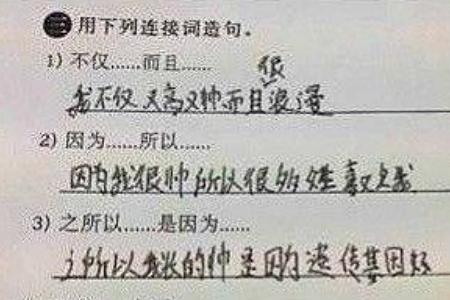 三 用下列连接词造句。
1）不仅……而且……
很
我不仅又高又帅而且浪漫
2）因为……所以……
因为我很帅所以很多娃喜欢我
3）之所以……是因为……
之所以我长的帅是因为遗传基因好